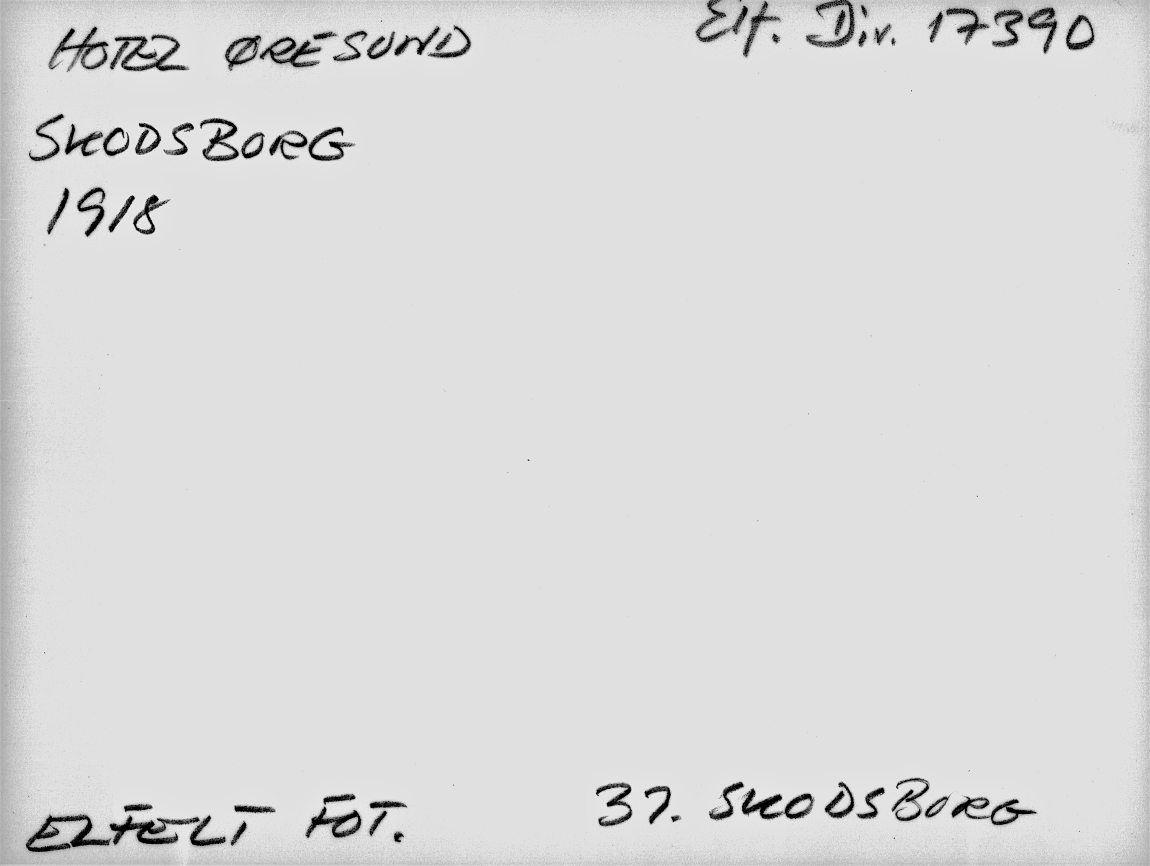 HOTEL ØRESUND
Elf. Div. 17390
SKODSBORG
1918
ELFELT FOT.
37. SKODSBORG